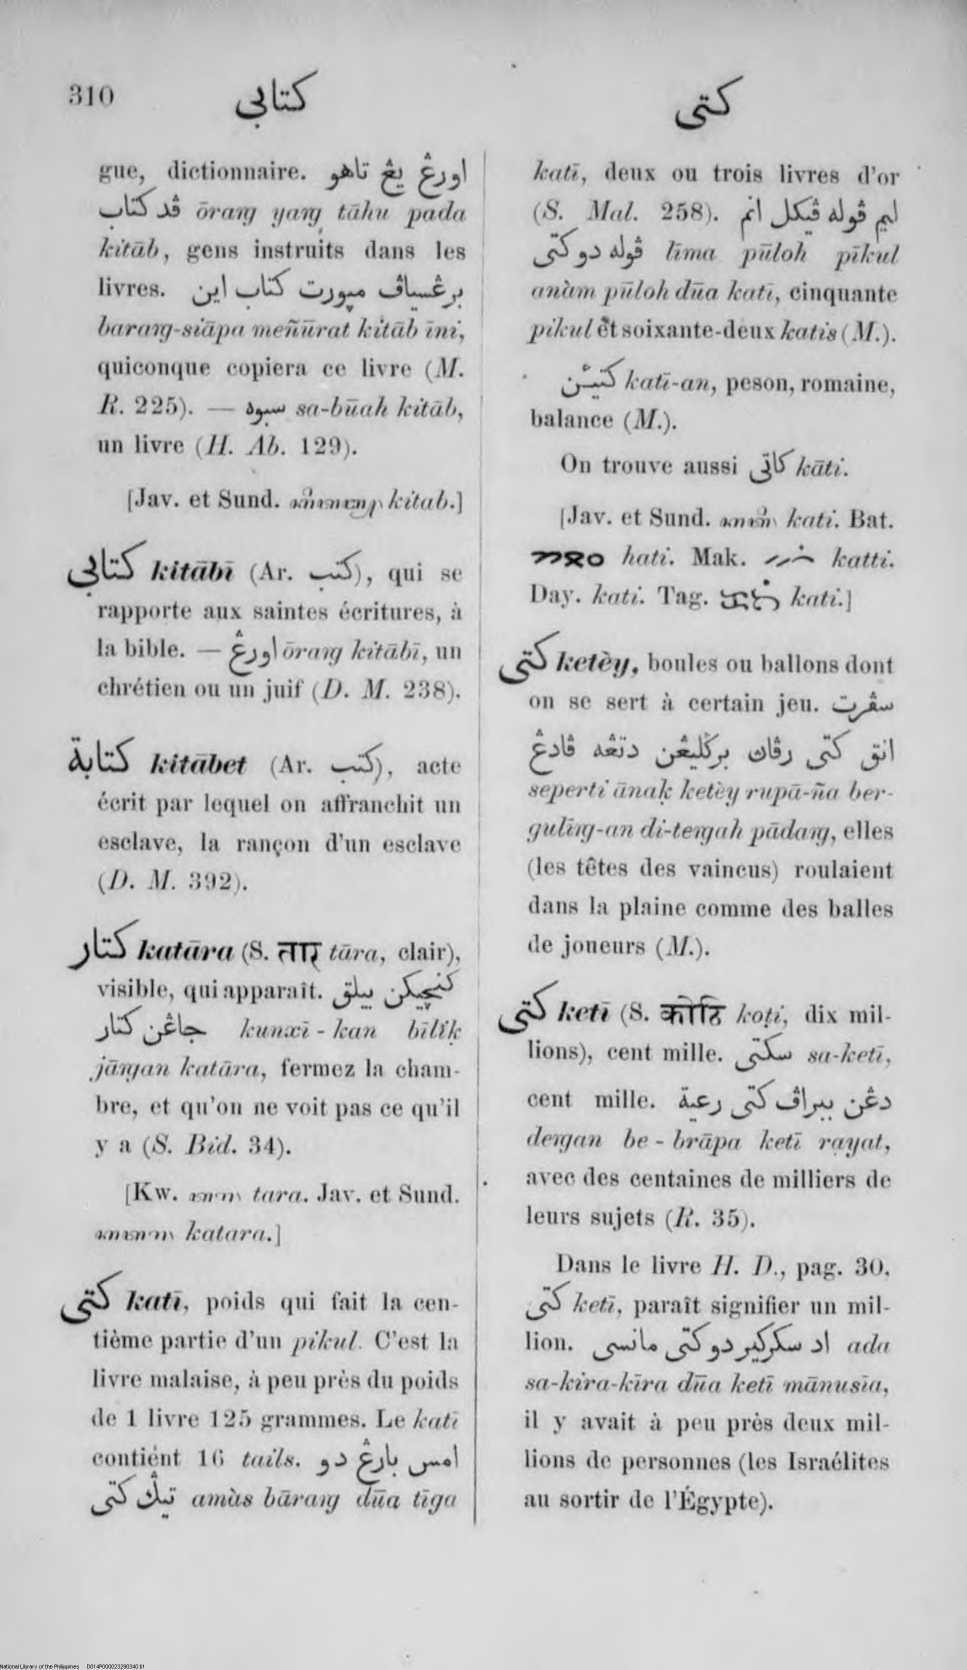 310
كتابي
كتي
gue, dictionnaire. اورڠ يڠ تاهو
ڤد كتاب ōraŋ yaŋ tāhu pada
kitāb, gens instruits dans les
livres. برڠسياڤ مپورت كتاب اين
baraŋ-siāpa meñūrat kitāb īni,
quiconque copiera ce livre (M.
R. 225). — سبوه sa-būah kitāb,
un livre (H. Ab. 129).
[Jav. et Sund. kitab.]
كتابي kitābī (Ar. كتب), qui se
rapporte aux saintes écritures, à
la bible. — اورڠ ōraŋ kitābī, un
chrétien ou un juif (D. M. 238).
كتابة kitābet (Ar. كتب), acte
écrit par lequel on affranchit un
esclave, la rançon d'un esclave
(D. M. 392).
كتار katāra (S. तार tāra, clair),
visible, qui apparaît. كنچيكن بيلق
جاڠن كتار kunxī-kan bīliḳ
jāŋan katāra, fermez la cham-
bre, et qu'on ne voit pas ce qu'il
y a (S. Bid. 34).
[Kw. tara. Jav. et Sund.
katara.]
كتي katī, poids qui fait la cen-
tième partie d'un pikul. C'est la
livre malaise, à peu près du poids
de 1 livre 125 grammes. Le katī
contient 16 tails. امس بارڠ دو
تيݢ كتي amàs bāraŋ dūa tīga
katī, deux ou trois livres d'or
(S. Mal. 258). ليم ڤوله ڤيكل انم
ڤوله دو كتي līma pūloh pīkul
anàm pūloh dūa katī, cinquante
pikul et soixante-deux katis (M.).
كتيئن katī-an, peson, romaine,
balance (M.).
On trouve aussi كاتي kāti.
[Jav. et Sund. kati. Bat.
hati. Mak. katti.
Day. kati. Tag. kati.]
كتي ketèy, boules ou ballons dont
on se sert à certain jeu. سڤرت
انق كتي رڤاڽ برݢليڠن دتڠه ڤادڠ
seperti ānaḳ ketèy rupā-ña ber-
guliŋ-an di-teŋah pādaŋ, elles
(les têtes des vaincus) roulaient
dans la plaine comme des balles
de joueurs (M.).
كتي ketī (S. कोटि koṭi, dix mil-
lions), cent mille. سكتي sa-ketī,
cent mille. دڠن ببراڤ كتي رعية
deŋan be-brāpa ketī rayat,
avec des centaines de milliers de
leurs sujets (R. 35).
Dans le livre H. D., pag. 30,
كتي ketī, paraît signifier un mil-
lion. اد سكركير دو كتي مانسي ada
sa-kira-kīra dūa ketī mānusīa,
il y avait à peu près deux mil-
lions de personnes (les Israélites
au sortir de l'Égypte).
National Library of the Philippines